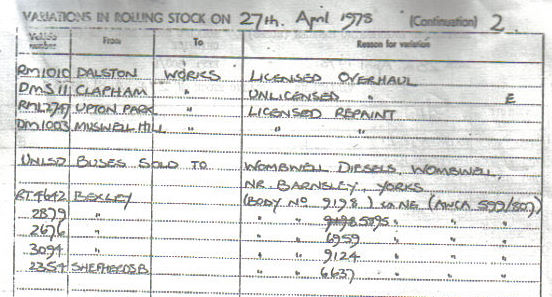 VARIATIONS IN ROLLING STOCK ON 27th. April 1978 (Continuation) 2
Vehicle number From To Reason for variation
RM1010 DALSTON WORKS LICENSED OVERHAUL
DMS 11 CLAPHAM " UNLICENSED " E
RML2747 UPTON PARK " LICENSED REPAINT
DM1003 MUSWELL HILL " " "
UNLSD BUSES SOLD TO WOMBWELL DIESELS, WOMBWELL,
NR. BARNSLEY, YORKS
RT4642 BEXLEY (BODY NO 9198 ) (AWCA 599/807)
2879 " " " 5895 " " "
2676 " " " 6959 " " "
3094 " " " 9124 " " "
2354 SHEPHERDS B " " 6637 " " "